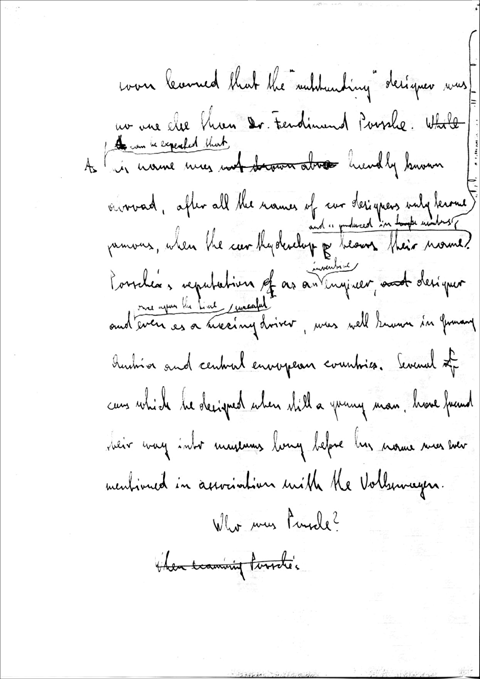 soon learned that the "outstanding" designer was
no one else than Dr. Ferdinand Porsche. While
As can be expected that
his name was not known abro hardly known
abroad, after all the names of car designers only become
and is produced in larger numbers
famous, when the car they develop bears their name.
inventive
Porsche's reputation of as an engineer, and designer
once upon the time
and even as a racing driver, was well known in Germany
Austria and central european countries. Several of
cars which he designed when still a young man, have found
their way into museums long before his name was ever
mentioned in association with the Volkswagen.
Who was Porsche?
When examining Porsche's